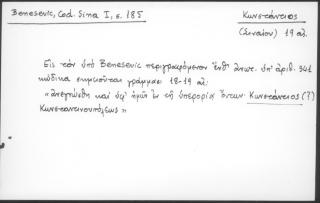 Benesevic, Cod. Sina I, σ. 185
Κωνστάντιος
(Σιναίου) 19 αἰ.
Εἰς τὸν ὑπὸ Benesevic περιγραφόμενον ἔνθ' ἀνωτ. ὑπ' ἀριθ. 341
κώδικα σημειοῦται γράμμασι 18-19 αἰ:
«ἀνεγνώσθη καὶ ὑφ' ἡμῶν ἐν τῇ ὑπερορίᾳ ὄντων. Κωνστάντιος (?)
Κωνσταντινουπόλεως»